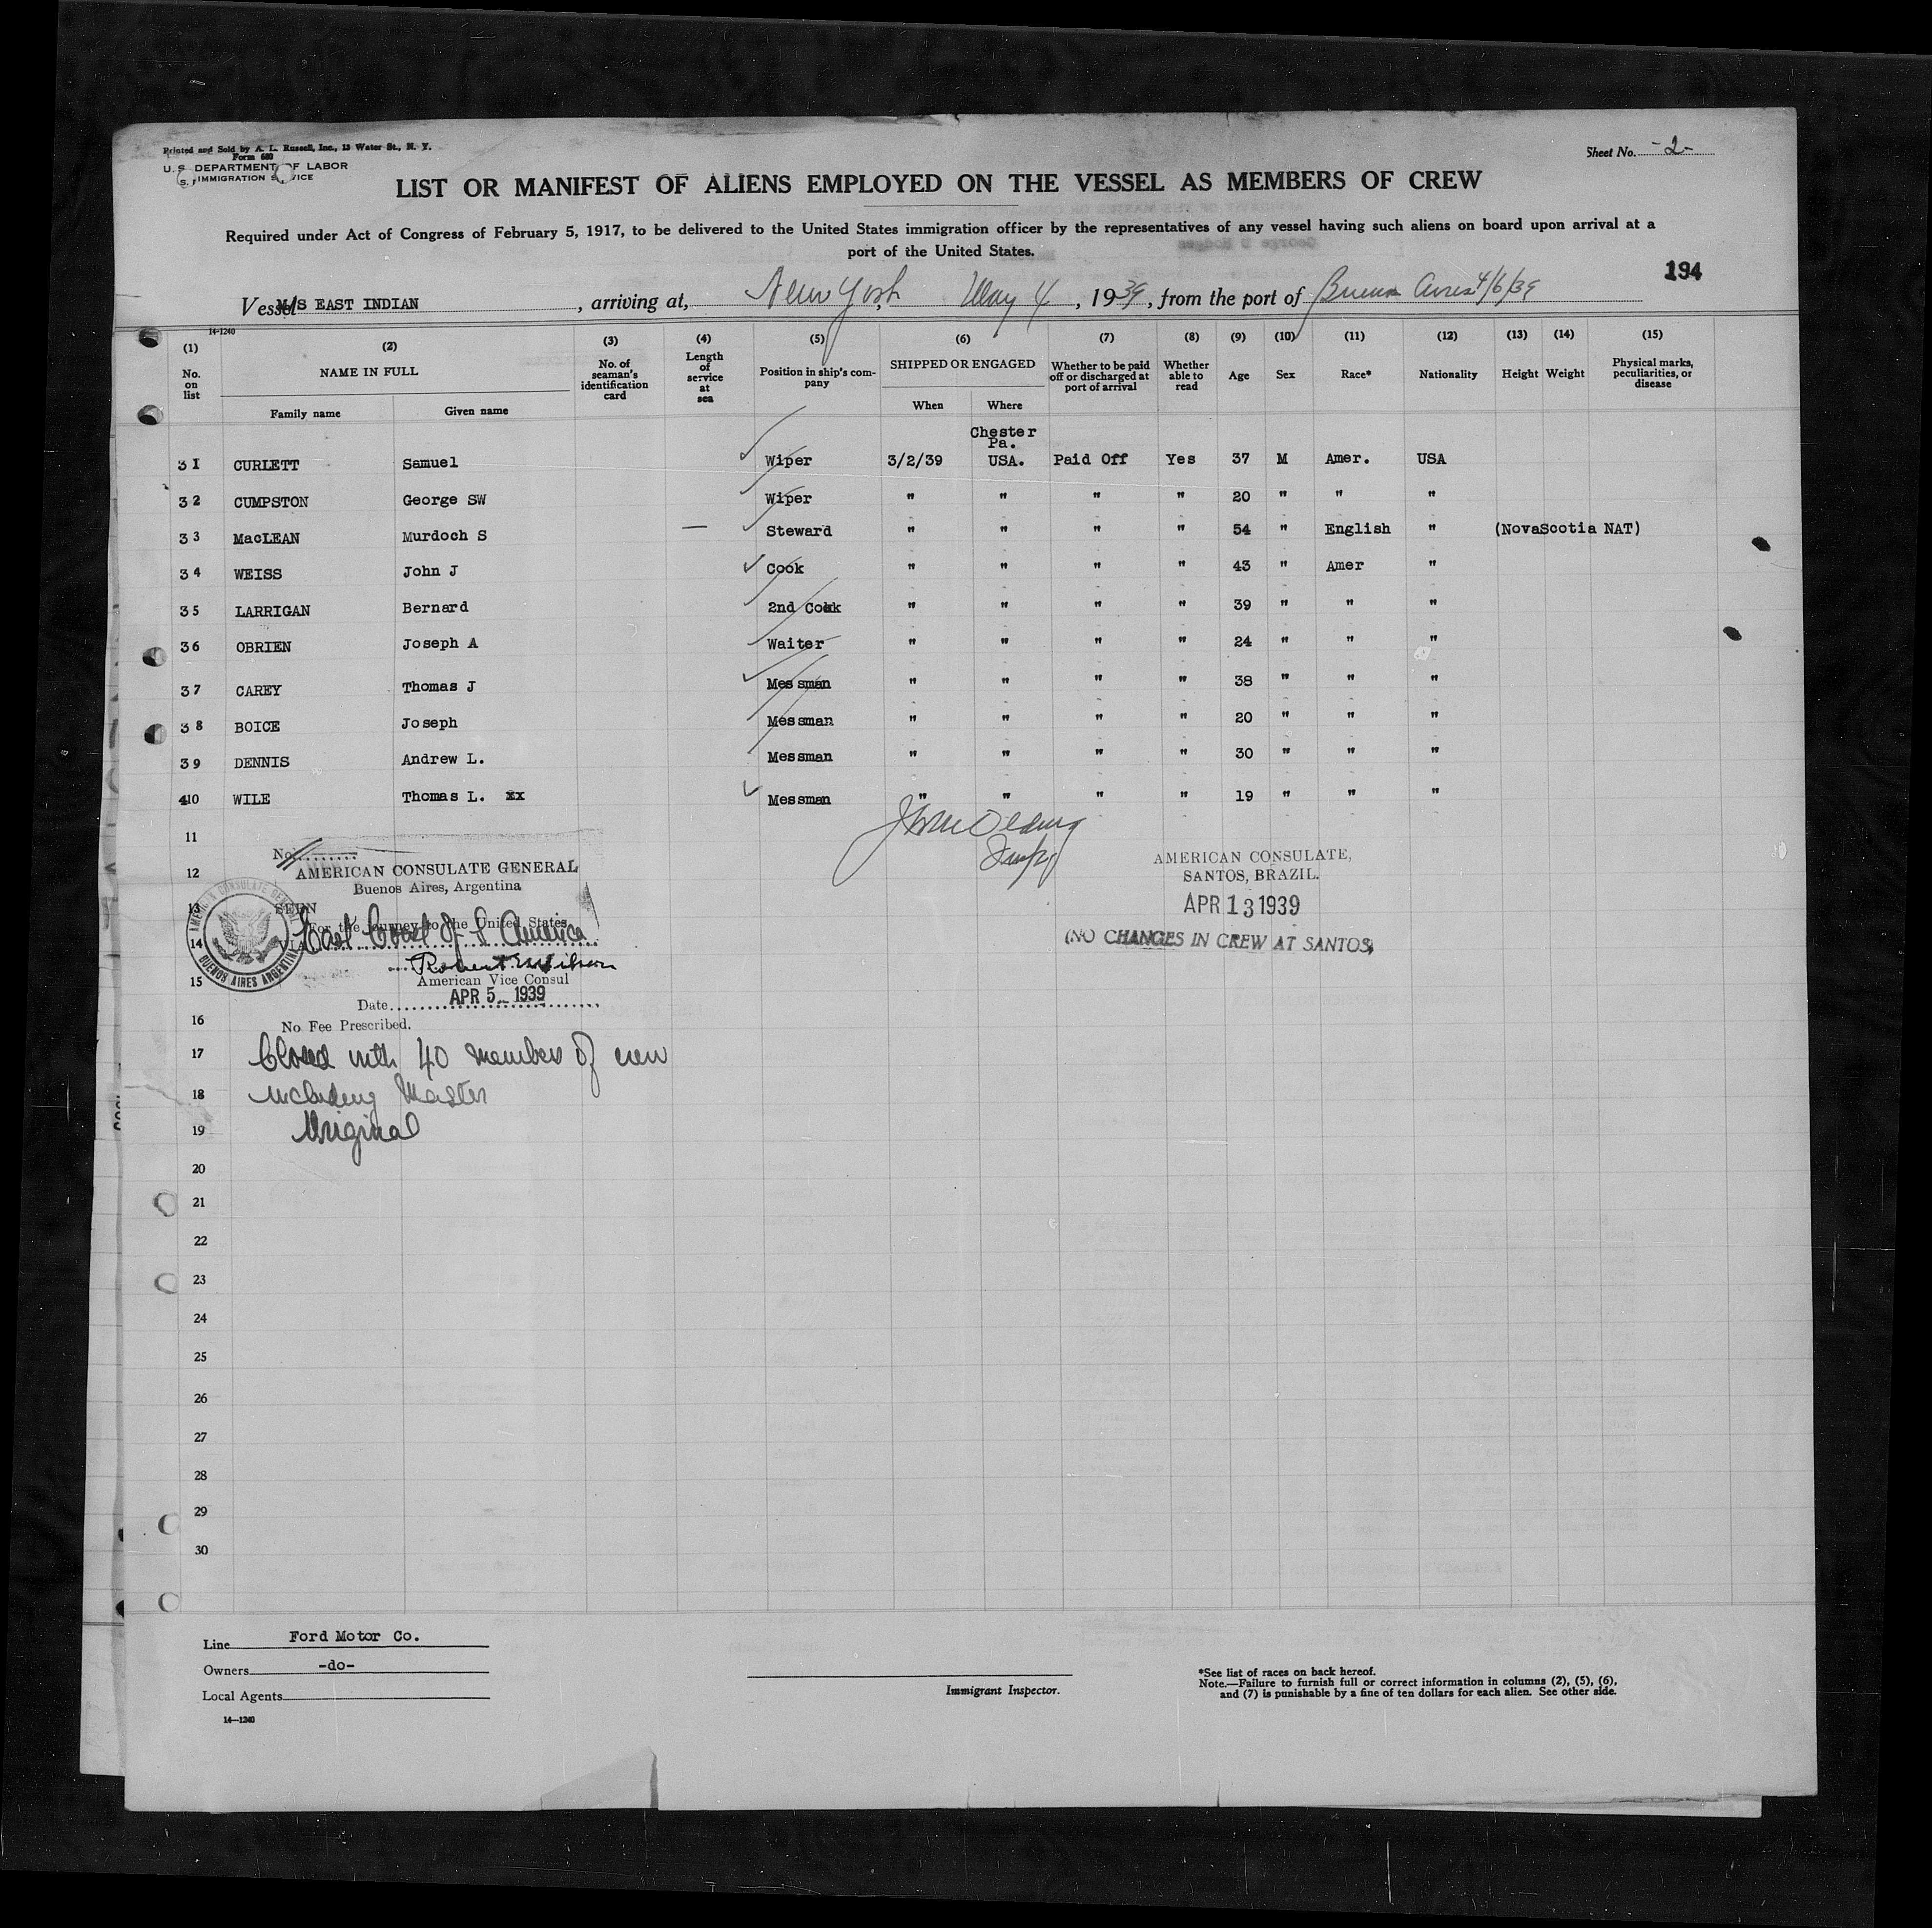 Printed and Sold by A. L. Russell, Inc., 13 Water St., N. Y.
Form 680
U. S. DEPARTMENT OF LABOR
IMMIGRATION SERVICE
Sheet No. -2-
LIST OR MANIFEST OF ALIENS EMPLOYED ON THE VESSEL AS MEMBERS OF CREW
Required under Act of Congress of February 5, 1917, to be delivered to the United States immigration officer by the representatives of any vessel having such aliens on board upon arrival at a
port of the United States.
194
Vessel M/S EAST INDIAN, arriving at, New York, May 4, 1939, from the port of Buenos Aires 4/6/39
14-1240
(1) (2) (3) (4) (5) (6) (7) (8) (9) (10) (11) (12) (13) (14) (15)
No. on list NAME IN FULL Family name Given name No. of seaman's identification card Length of service at sea Position in ship's company SHIPPED OR ENGAGED When Where Whether to be paid off or discharged at port of arrival Whether able to read Age Sex Race* Nationality Height Weight Physical marks, peculiarities, or disease
Chester
Pa.
31 CURLETT Samuel Wiper 3/2/39 USA. Paid Off Yes 37 M Amer. USA
32 CUMPSTON George SW Wiper " " " " 20 " " "
33 MacLEAN Murdoch S — Steward " " " " 54 " English " (NovaScotia NAT)
34 WEISS John J Cook " " " " 43 " Amer "
35 LARRIGAN Bernard 2nd Cook " " " " 39 " " "
36 OBRIEN Joseph A Waiter " " " " 24 " " "
37 CAREY Thomas J Messman " " " " 38 " " "
38 BOICE Joseph Messman " " " " 20 " " "
39 DENNIS Andrew L. Messman " " " " 30 " " "
410 WILE Thomas L. xx Messman " " " " 19 " " "
11
No.
12 AMERICAN CONSULATE GENERAL
Buenos Aires, Argentina
13 SEEN
For the journey to the United States
14 VIA East Coast of S America
Robert Wilson
15 American Vice Consul
Date APR 5 1939
16 No Fee Prescribed.
AMERICAN CONSULATE GENERAL
BUENOS AIRES ARGENTINA
AMERICAN CONSULATE,
SANTOS, BRAZIL.
APR 13 1939
(NO CHANGES IN CREW AT SANTOS)
17 Closed with 40 members of crew
18 including Master
19 Original
20
21
22
23
24
25
26
27
28
29
30
Line Ford Motor Co.
Owners -do-
Local Agents
14—1240
Immigrant Inspector.
*See list of races on back hereof.
Note.—Failure to furnish full or correct information in columns (2), (5), (6),
and (7) is punishable by a fine of ten dollars for each alien. See other side.